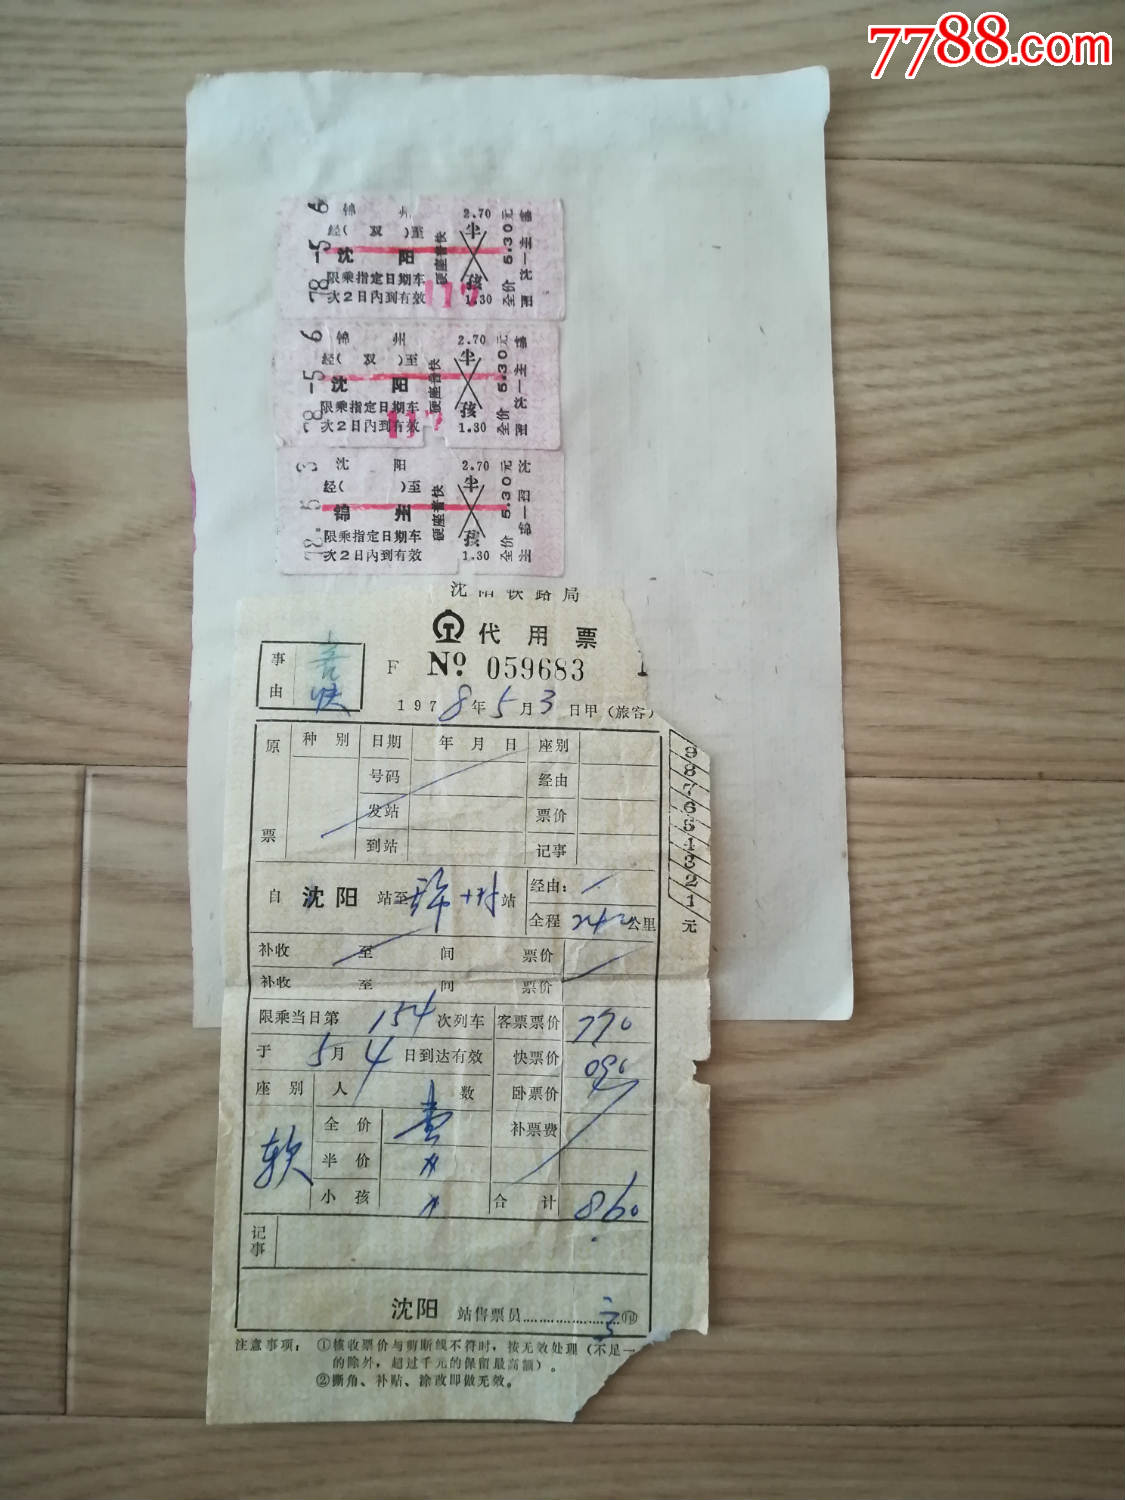 7788.com
锦 州 2.70
经( 双 )至 半
沈 阳 硬座普快 孩
限乘指定日期车
次2日内到有效 117 1.30
全价 5.30元
78-5 6
锦 州 2.70
经( 双 )至 半
沈 阳 硬座普快 孩
限乘指定日期车
次2日内到有效 117 1.30
全价 5.30元
78-5 6
沈 阳 2.70
经( )至 半
锦 州 硬座普快 孩
限乘指定日期车
次2日内到有效 1.30
全价 5.30元
78.5 3
沈阳铁路局
代用票
事由
F № 059683
1978年5月3日甲(旅客)
原票 种别 日期 年 月 日 座别
号码 经由
发站 票价
到站 记事
自 沈阳 站至 锦州 站 经由:
全程 242 公里
补收 至 间 票价
补收 至 间 票价
限乘当日第 154 次列车 客票票价 770
于 5月4日到达有效 快票价 090
座别 人数 卧票价
软 全价 壹 补票费
半价 〃
小孩 〃 合计 860
记事
沈阳 站售票员........................印
注意事项: ①核收票价与剪断线不符时,按无效处理(不足一
的除外,超过千元的保留最高额)。
②撕角、补贴、涂改即做无效。
9
8
7
6
5
4
3
2
1
元